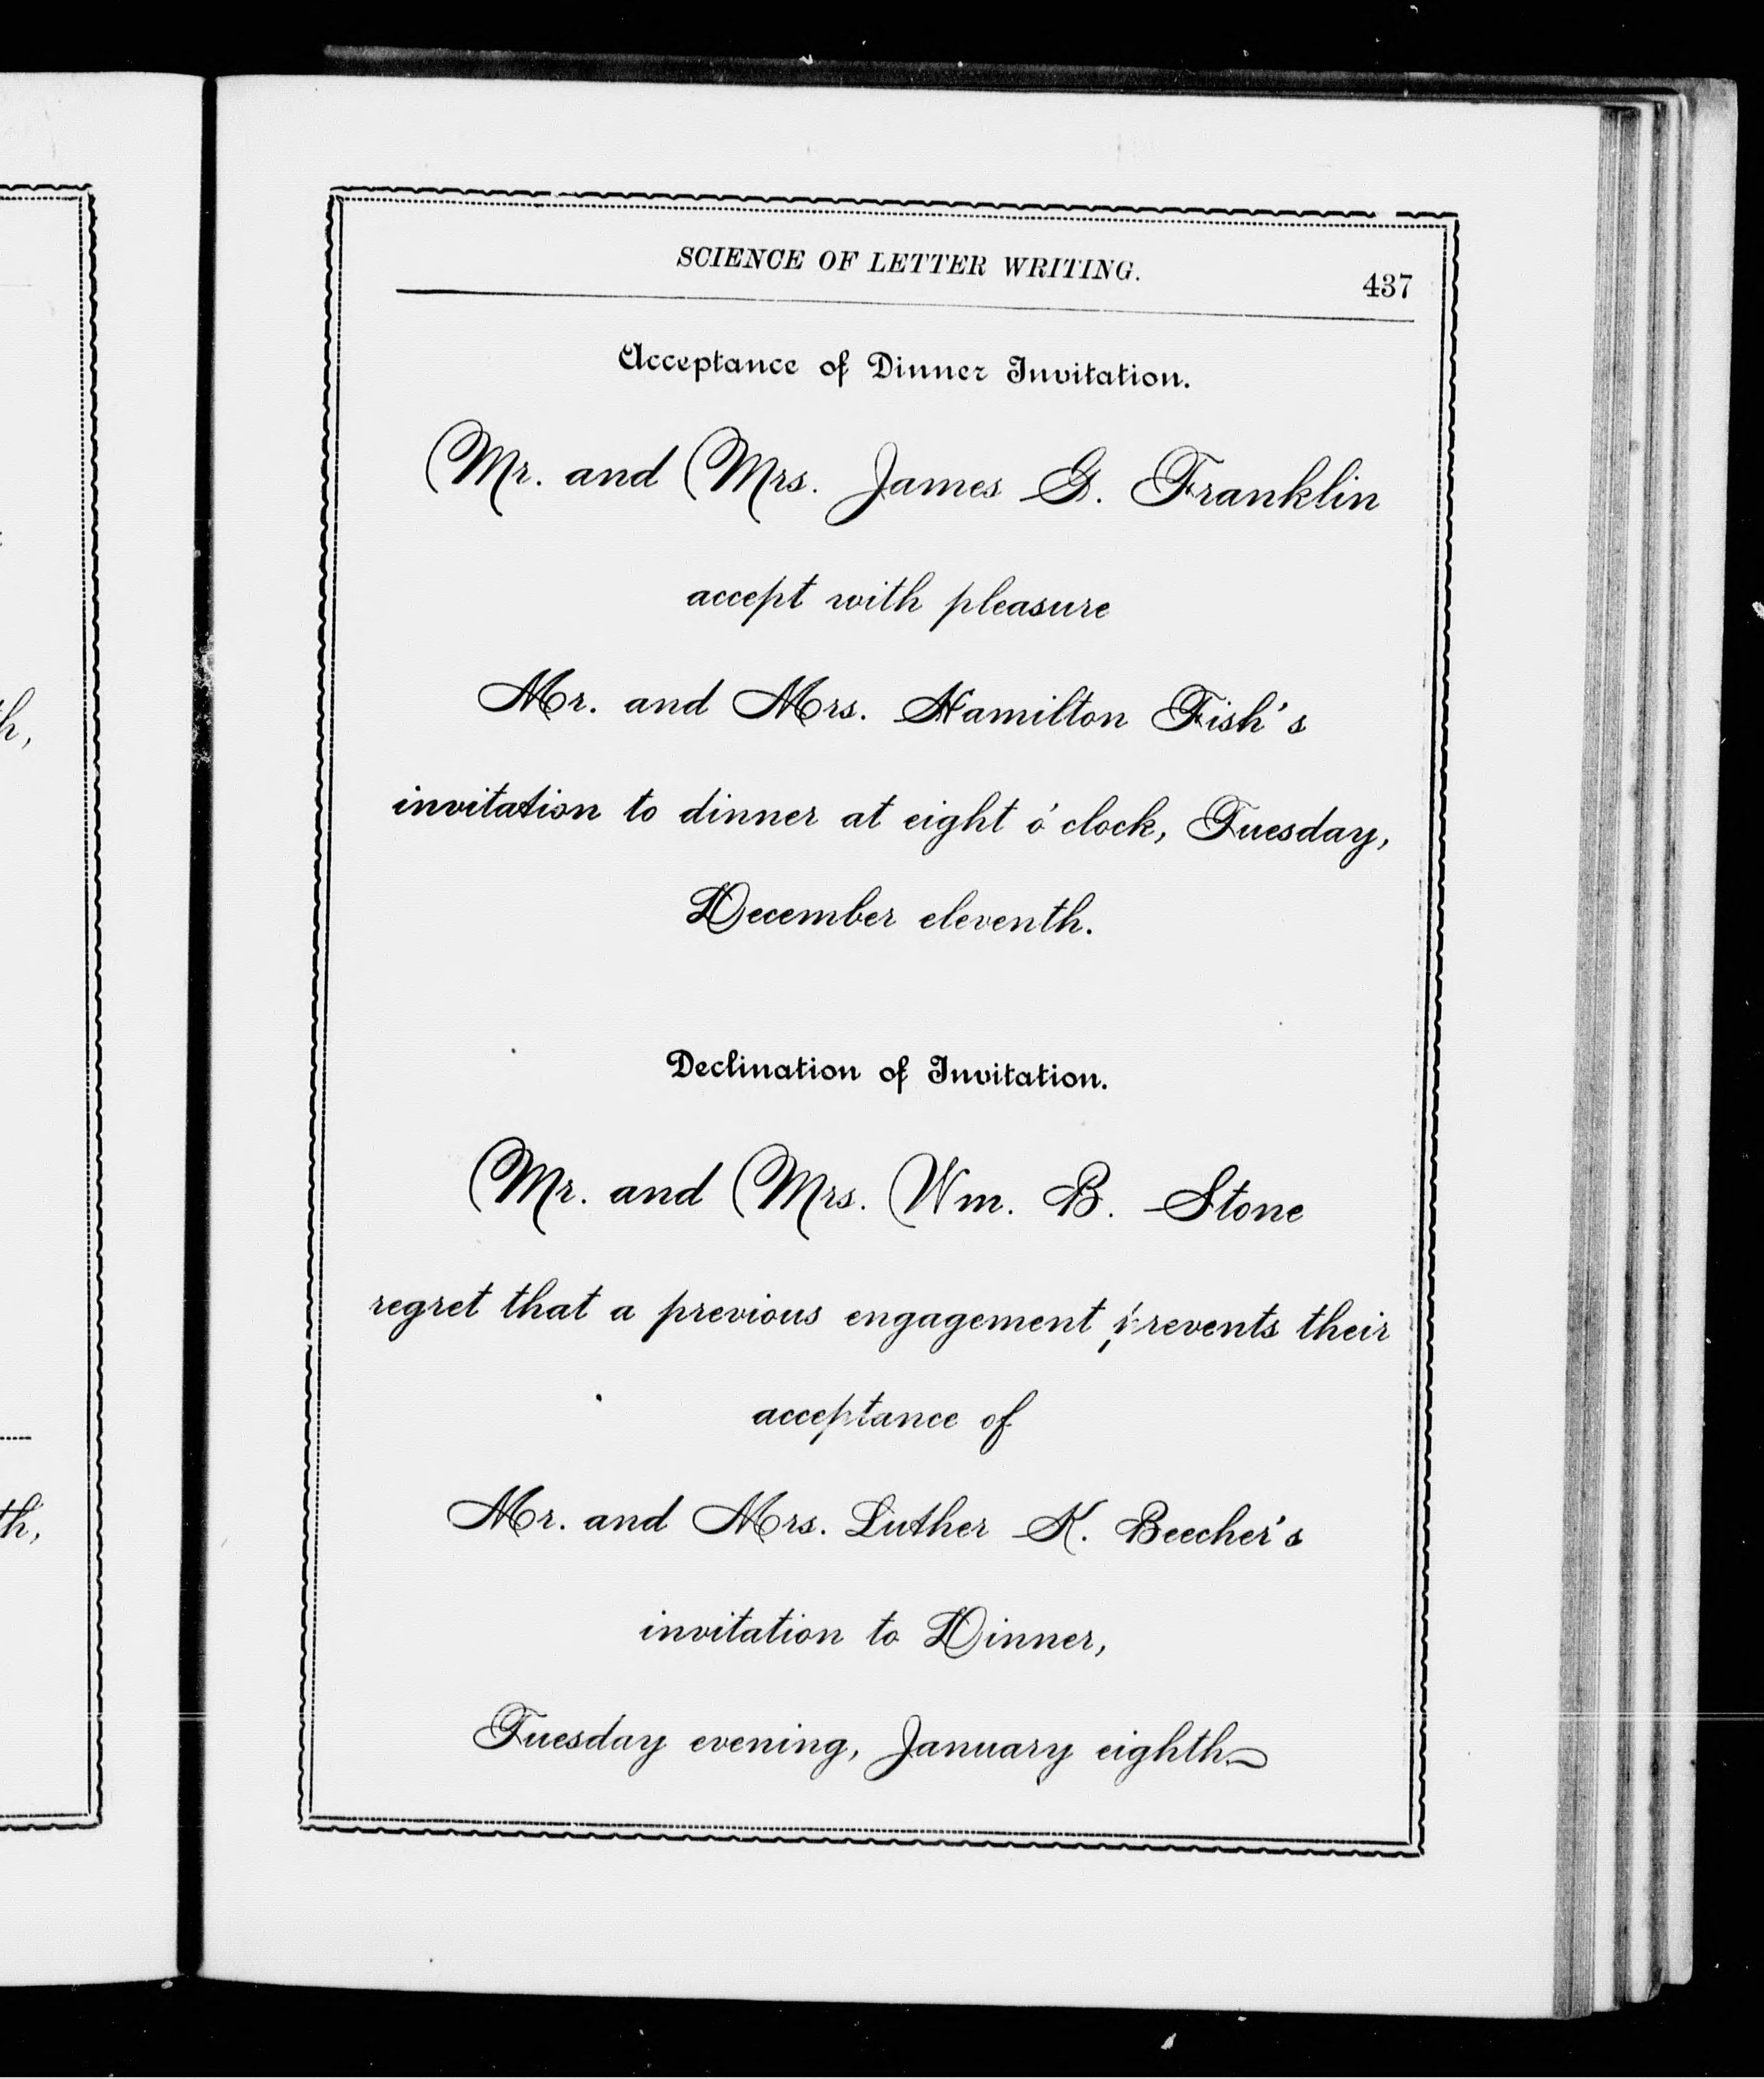 SCIENCE OF LETTER WRITING.
437
Acceptance of Dinner Invitation.
Mr. and Mrs. James G. Franklin
accept with pleasure
Mr. and Mrs. Hamilton Fish's
invitation to dinner at eight o'clock, Tuesday,
December eleventh.
Declination of Invitation.
Mr. and Mrs. Wm. B. Stone
regret that a previous engagement prevents their
acceptance of
Mr. and Mrs. Luther K. Beecher's
invitation to Dinner,
Tuesday evening, January eighth.